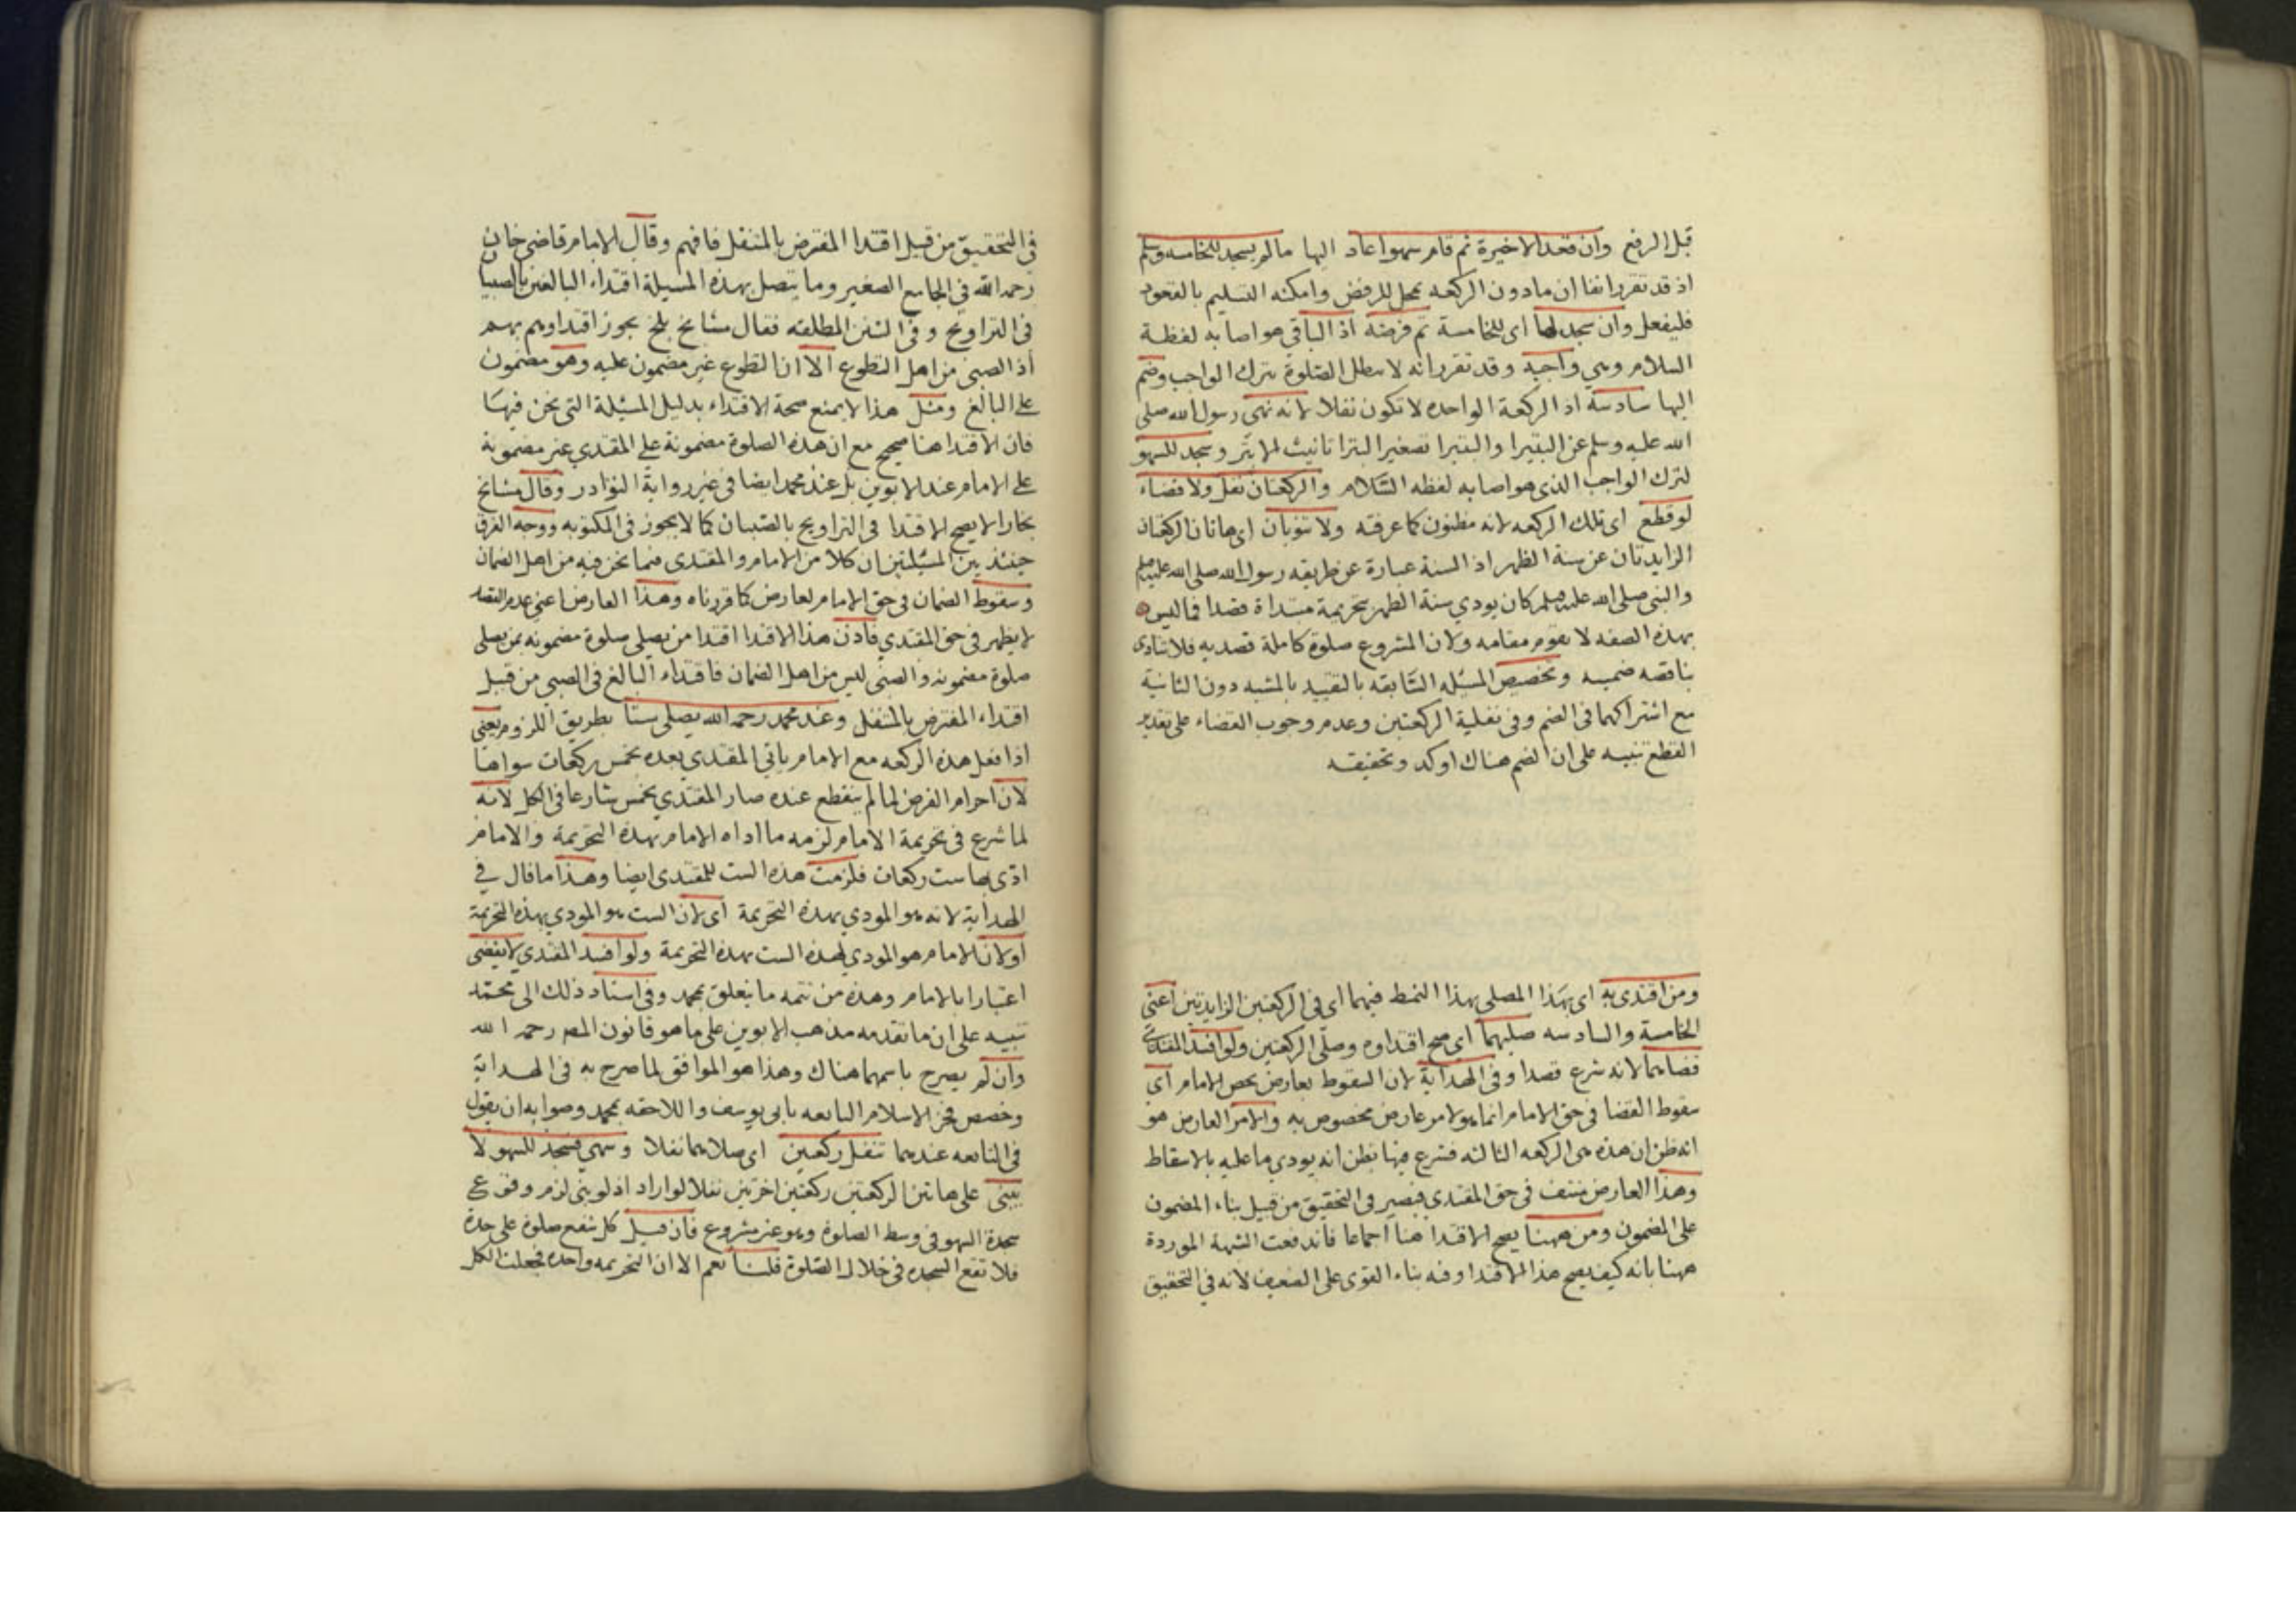 قبل الرفع وان قعد الاخيرة ثم قام سهوا عاد اليها ما لم يسجد للخامسه وسلم
اذ قد تقرر انفا ان ما دون الركعه بمحل للرفض وامكنه التسليم بالقعود
فليفعل وان سجد لها اى للخامسة تم فرضه اذ الباقى هو اصابه لفظة
السلام وهي واجبة وقد تقرر انه لا تبطل الصلوة بترك الواجب وضم
اليها سادسة اذ الركعة الواحده لا تكون نفلا لانه نهى رسول الله صلى
الله عليه وسلم عن البتيرا والبتيرا تصغير البترا تانيث الابتر وسجد للسهو
لترك الواجب الذى هو اصابه لفظه السلام والركعتان نفل ولا قضاء
لو قطع اى تلك الركعه لانه مظنون كما عرفته ولا تنوبان اى هاتان الركعتان
الزايدتان عن سنة الظهر اذ السنة عبارة عن طريقه رسول الله صلى الله عليه وسلم
والنبى صلى الله عليه وسلم كان يودي سنة الظهر بتحريمة مبتداة قصدا فما ليس
بهذه الصفه لا يقوم مقامه ولان المشروع صلوة كاملة قصديه فلا تتادى
بناقصه ضمنيه وتخصيص المسئله السابقه بالتقييد بالمشيه دون الثانية
مع اشتراكهما فى الضم وفى نفلية الركعتين وعدم وجوب القضاء على تقدير
القطع تنبيه على ان الضم هناك اوكد وتحقيقه
ومن اقتدى به اى بهذا المصلى بهذا النمط فيهما اى فى الركعتين الزايدتين اعنى
الخامسة والسادسه صليهما اى صح اقتداوه وصلى الركعتين ولو افسد المقتدى
قضاهما لانه شرع قصدا وفى الهداية لان السقوط بعارض يخص الامام اى
سقوط القضا فى حق الامام انما هو لامر عارض مخصوص به والامر العارض هو
انه ظن ان هذه هى الركعه الثالثه فشرع فيها بظن انه يودي ما عليه بالاسقاط
وهذا العارض منتف فى حق المقتدي فيصير فى التحقيق من قبيل بناء المضمون
على المضمون ومن ههنا يصح الاقتدا هنا اجماعا فاندفعت الشبهة الموردة
ههنا بانه كيف يصح هذا الاقتدا وفيه بناء القوى على الضعيف لانه في التحقيق
فى التحقيق من قبيل اقتدا المفترض بالمتنفل فافهم وقال الامام قاضى خان
رحمه الله في الجامع الصغير وما يتصل بهذه المسيلة اقتداء البالغين بالصبيان
فى التراويح وفى السنن المطلقه فقال مشايخ بلخ يجوز اقتداوهم بهم
اذ الصبى من اهل التطوع الا ان التطوع غير مضمون عليه وهو مضمون
على البالغ ومثل هذا لا يمنع صحة الاقتداء بدليل المسئلة التى نحن فيها
فان الاقتدا هنا صحيح مع ان هذه الصلوة مضمونة على المقتدي غير مضمونة
على الامام عند الابوين بل عند محمد ايضا فى غير رواية النوادر وقال مشايخ
بخارا لا يصح الاقتدا فى التراويح بالصبيان كما لا يجوز فى المكتوبه ووجه الفرق
حينئذ بين المسئلتين ان كلا من الامام والمقتدى فيما نحن فيه من اهل الضمان
وسقوط الضمان فى حق الامام لعارض كما قررناه وهذا العارض اعنى عدم القصد
لا يظهر فى حق المقتدي فاذن هذا الاقتدا اقتدا من يصلى صلوة مضمونه بمن يصلى
صلوة مضمونه والصبى ليس من اهل الضمان فاقتداء البالغ فى الصبى من قبيل
اقتداء المفترض بالمتنفل وعند محمد رحمه الله يصلى ستا بطريق اللزوم يعنى
اذا فعل هذه الركعه مع الامام ياتي المقتدي بعده بخمس ركعات سواها
لان احرام الفرض لما لم ينقطع عنده صار المقتدي بخمس شارعا فى الكل لانه
لما شرع فى تحريمة الامام لزمه ما اداه الامام بهذه التحريمة والامام
ادى بها ست ركعات فلزمت هذه الست للمقتدى ايضا وهذا ما قال في
الهداية لانه هو المودي بهذه التحريمة اى لان الست هو المودي بهذه التحريمة
او لان الامام هو المودي لهذه الست بهذه التحريمة ولو افسد المقتدي لا يقضى
اعتبارا بالامام وهذه من تتمه ما يتعلق بمحمد وفى اسناد ذلك الى محمد
تنبيه على ان ما تقدمه مذهب الابوين على ما هو قانون المص رحمه الله
وان لم يصرح باسمهما هناك وهذا هو الموافق لما صرح به فى الهداية
وخصص فخر الاسلام السابعه بابى يوسف واللاحقه بمحمد وصوابه ان يقول
فى التابعه عندهما تنفل ركعتين اى صلاهما نفلا وسهى فسجد للسهو لا
يبنى على هاتين الركعتين ركعتين اخرتين نفلا لو اراد اذ لو بنى لزم وقوع
سجدة السهو فى وسط الصلوة وهو غير مشروع فان قيل كل شفع صلوة على حدة
فلا تقع السجده فى خلال الصلوة قلنا نعم الا ان التحريمه واحده فجعلت الكل